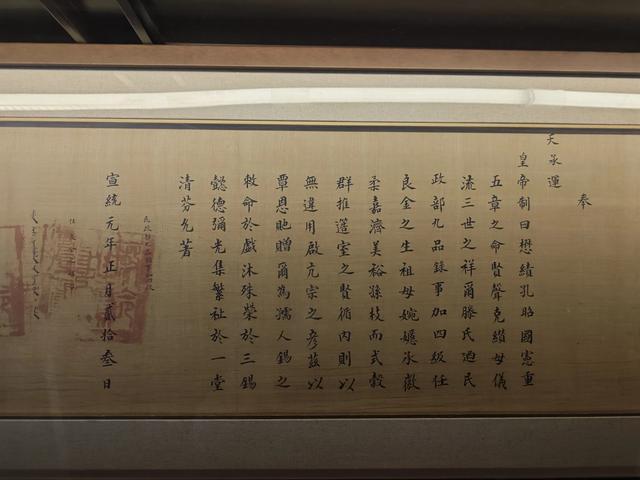 奉
天承運
皇帝制曰懋績孔昭國憲重
五章之命賢聲克纘母儀
流三世之祥爾滕氏迺民
政部九品錄事加四級任
良金之生祖母婉嫕永徽
柔嘉濟美裕孫枝而式穀
群推簉室之賢循內則以
無違用啟亢宗之彥茲以
覃恩貤贈爾為孺人錫之
敕命於戲沐殊榮於三錫
懿德彌光集繁祉於一堂
清芬允著
宣統元年正月貳拾叁日